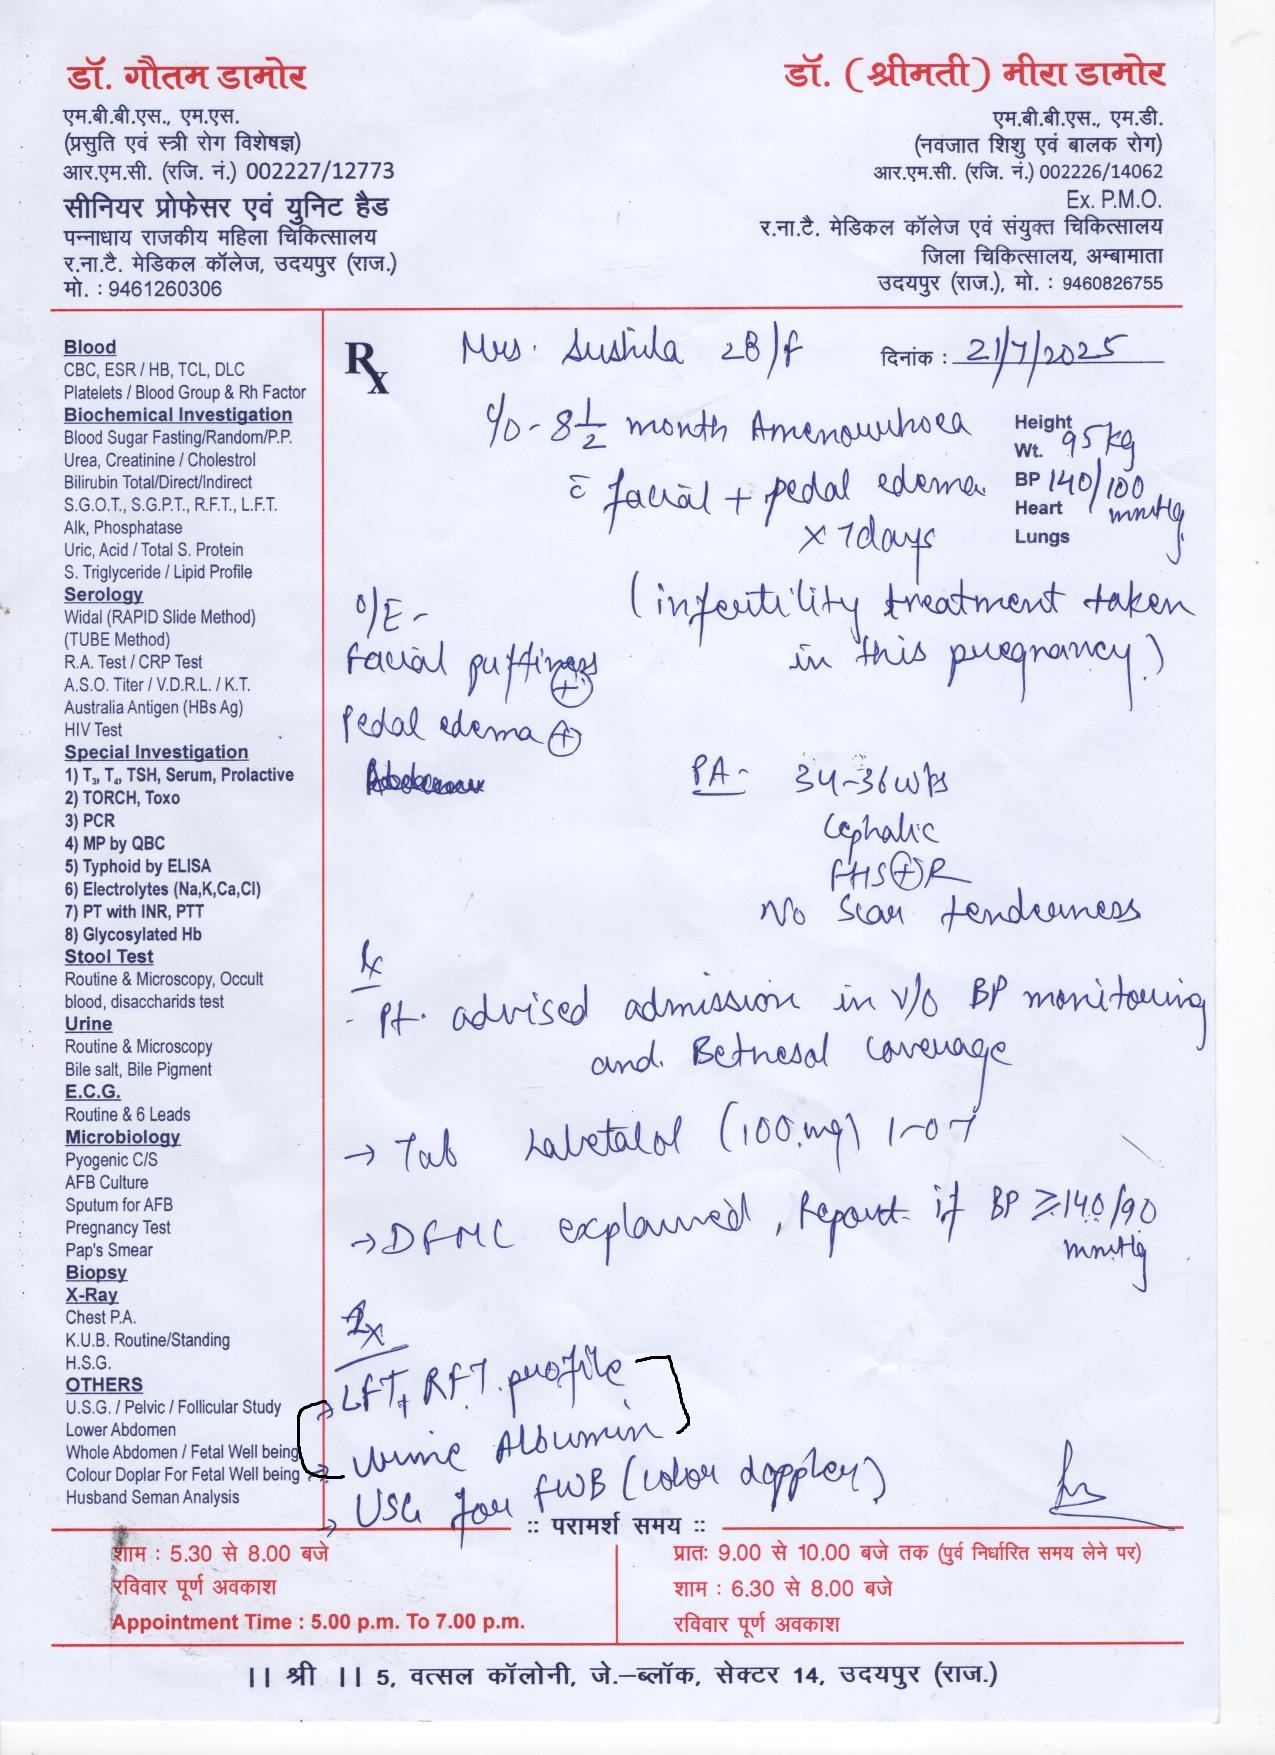 डॉ. गौतम डामोर
एम.बी.बी.एस., एम.एस.
(प्रसुति एवं स्त्री रोग विशेषज्ञ)
आर.एम.सी. (रजि. नं.) 002227/12773
सीनियर प्रोफेसर एवं युनिट हैड
पन्नाधाय राजकीय महिला चिकित्सालय
र.ना.टै. मेडिकल कॉलेज, उदयपुर (राज.)
मो. : 9461260306
डॉ. (श्रीमती) मीरा डामोर
एम.बी.बी.एस., एम.डी.
(नवजात शिशु एवं बालक रोग)
आर.एम.सी. (रजि. नं.) 002226/14062
Ex. P.M.O.
र.ना.टै. मेडिकल कॉलेज एवं संयुक्त चिकित्सालय
जिला चिकित्सालय, अम्बामाता
उदयपुर (राज.), मो. : 9460826755
Blood
CBC, ESR / HB, TCL, DLC
Platelets / Blood Group & Rh Factor
Biochemical Investigation
Blood Sugar Fasting/Random/P.P.
Urea, Creatinine / Cholestrol
Bilirubin Total/Direct/Indirect
S.G.O.T., S.G.P.T., R.F.T., L.F.T.
Alk, Phosphatase
Uric, Acid / Total S. Protein
S. Triglyceride / Lipid Profile
Serology
Widal (RAPID Slide Method)
(TUBE Method)
R.A. Test / CRP Test
A.S.O. Titer / V.D.R.L. / K.T.
Australia Antigen (HBs Ag)
HIV Test
Special Investigation
1) T₃, T₄, TSH, Serum, Prolactive
2) TORCH, Toxo
3) PCR
4) MP by QBC
5) Typhoid by ELISA
6) Electrolytes (Na,K,Ca,Cl)
7) PT with INR, PTT
8) Glycosylated Hb
Stool Test
Routine & Microscopy, Occult
blood, disaccharids test
Urine
Routine & Microscopy
Bile salt, Bile Pigment
E.C.G.
Routine & 6 Leads
Microbiology
Pyogenic C/S
AFB Culture
Sputum for AFB
Pregnancy Test
Pap's Smear
Biopsy
X-Ray
Chest P.A.
K.U.B. Routine/Standing
H.S.G.
OTHERS
U.S.G. / Pelvic / Follicular Study
Lower Abdomen
Whole Abdomen / Fetal Well being
Colour Doplar For Fetal Well being
Husband Seman Analysis
Rx Mrs. Sushila 28/f दिनांक : 21/7/2025
c/o - 8½ month Amenorrhoea
c̄ facial + pedal edema
x 7 days
(infertility treatment taken
in this pregnancy)
Height
Wt. 95kg
BP 140/100 mmHg
Heart
Lungs
O/E -
Facial puffiness (+)
Pedal edema (+)
PA - 34-36 wks
Cephalic
FHS (+) R
No Scar tenderness
Rx
- Pt. advised admission in v/o BP monitoring
and Betnesol coverage
→ Tab Labetalol (100 mg) 1-0-1
→ DFMC explained, Report if BP ≥ 140/90
mmHg
→ LFT, RFT profile
→ Urine Albumin
→ USG for FWB (color doppler)
:: परामर्श समय ::
शाम : 5.30 से 8.00 बजे
रविवार पूर्ण अवकाश
Appointment Time : 5.00 p.m. To 7.00 p.m.
प्रातः 9.00 से 10.00 बजे तक (पुर्व निर्धारित समय लेने पर)
शाम : 6.30 से 8.00 बजे
रविवार पूर्ण अवकाश
|| श्री || 5, वत्सल कॉलोनी, जे.-ब्लॉक, सेक्टर 14, उदयपुर (राज.)